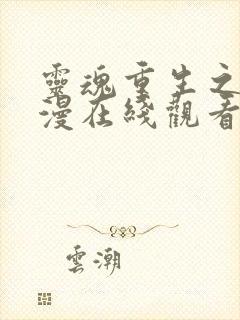 靈魂重生之
漫在綫觀看
雲潮